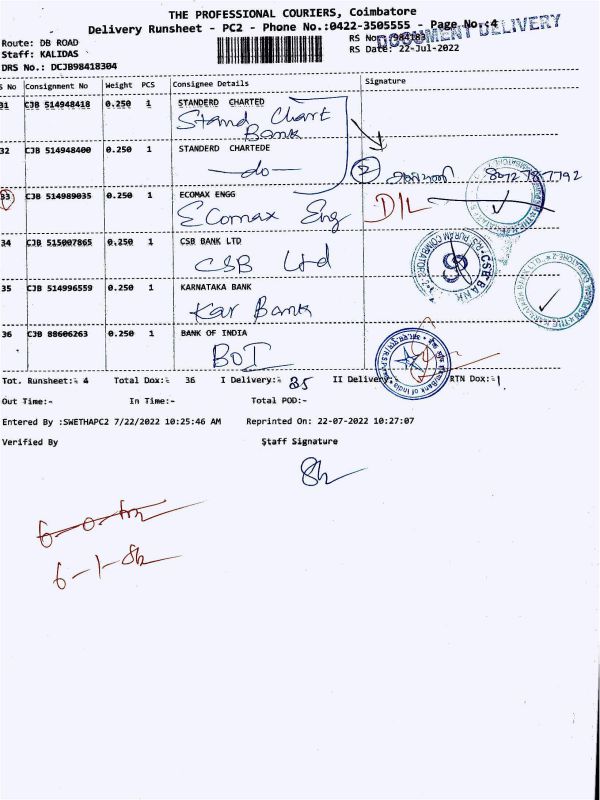 THE PROFESSIONAL COURIERS, Coimbatore
Delivery Runsheet - PC2 - Phone No.:0422-3505555 - Page No.:4
DOCUMENT DELIVERY
Route: DB ROAD
RS No
Staff: KALIDAS
RS Date: 22-Jul-2022
DRS No.: DCJB98418304
S No Consignment No Weight PCS Consignee Details Signature
31 CJB 514948418 0.250 1 STANDERD CHARTED
Stand Chart
Bank
32 CJB 514948400 0.250 1 STANDERD CHARTEDE
-do-
2 8072787792
33 CJB 514989035 0.250 1 ECOMAX ENGG
Ecomax Eng D/L
34 CJB 515007865 0.250 1 CSB BANK LTD
CSB Ltd
CSB BANK
R.S. PURAM COIMBATORE-2
35 CJB 514996559 0.250 1 KARNATAKA BANK
Kar Bank
36 CJB 88606263 0.250 1 BANK OF INDIA
BOI
Bank of India
Tot. Runsheet:- 4 Total Dox:- 36 I Delivery:- 35 II Delivery: RTN Dox:- 1
Out Time:- In Time:- Total POD:-
Entered By :SWETHAPC2 7/22/2022 10:25:46 AM Reprinted On: 22-07-2022 10:27:07
Verified By Staff Signature